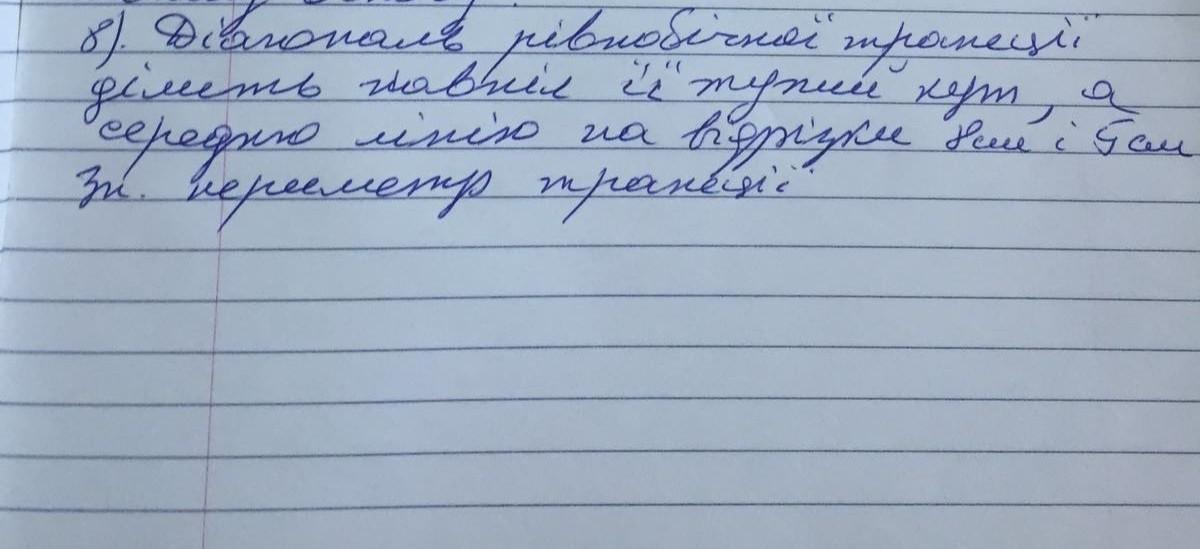 8). Діагональ рівнобічної трапеції
ділить навпіл її тупий кут, а
середню лінію на відрізки 8см і 5см
Зн. периметр трапеції